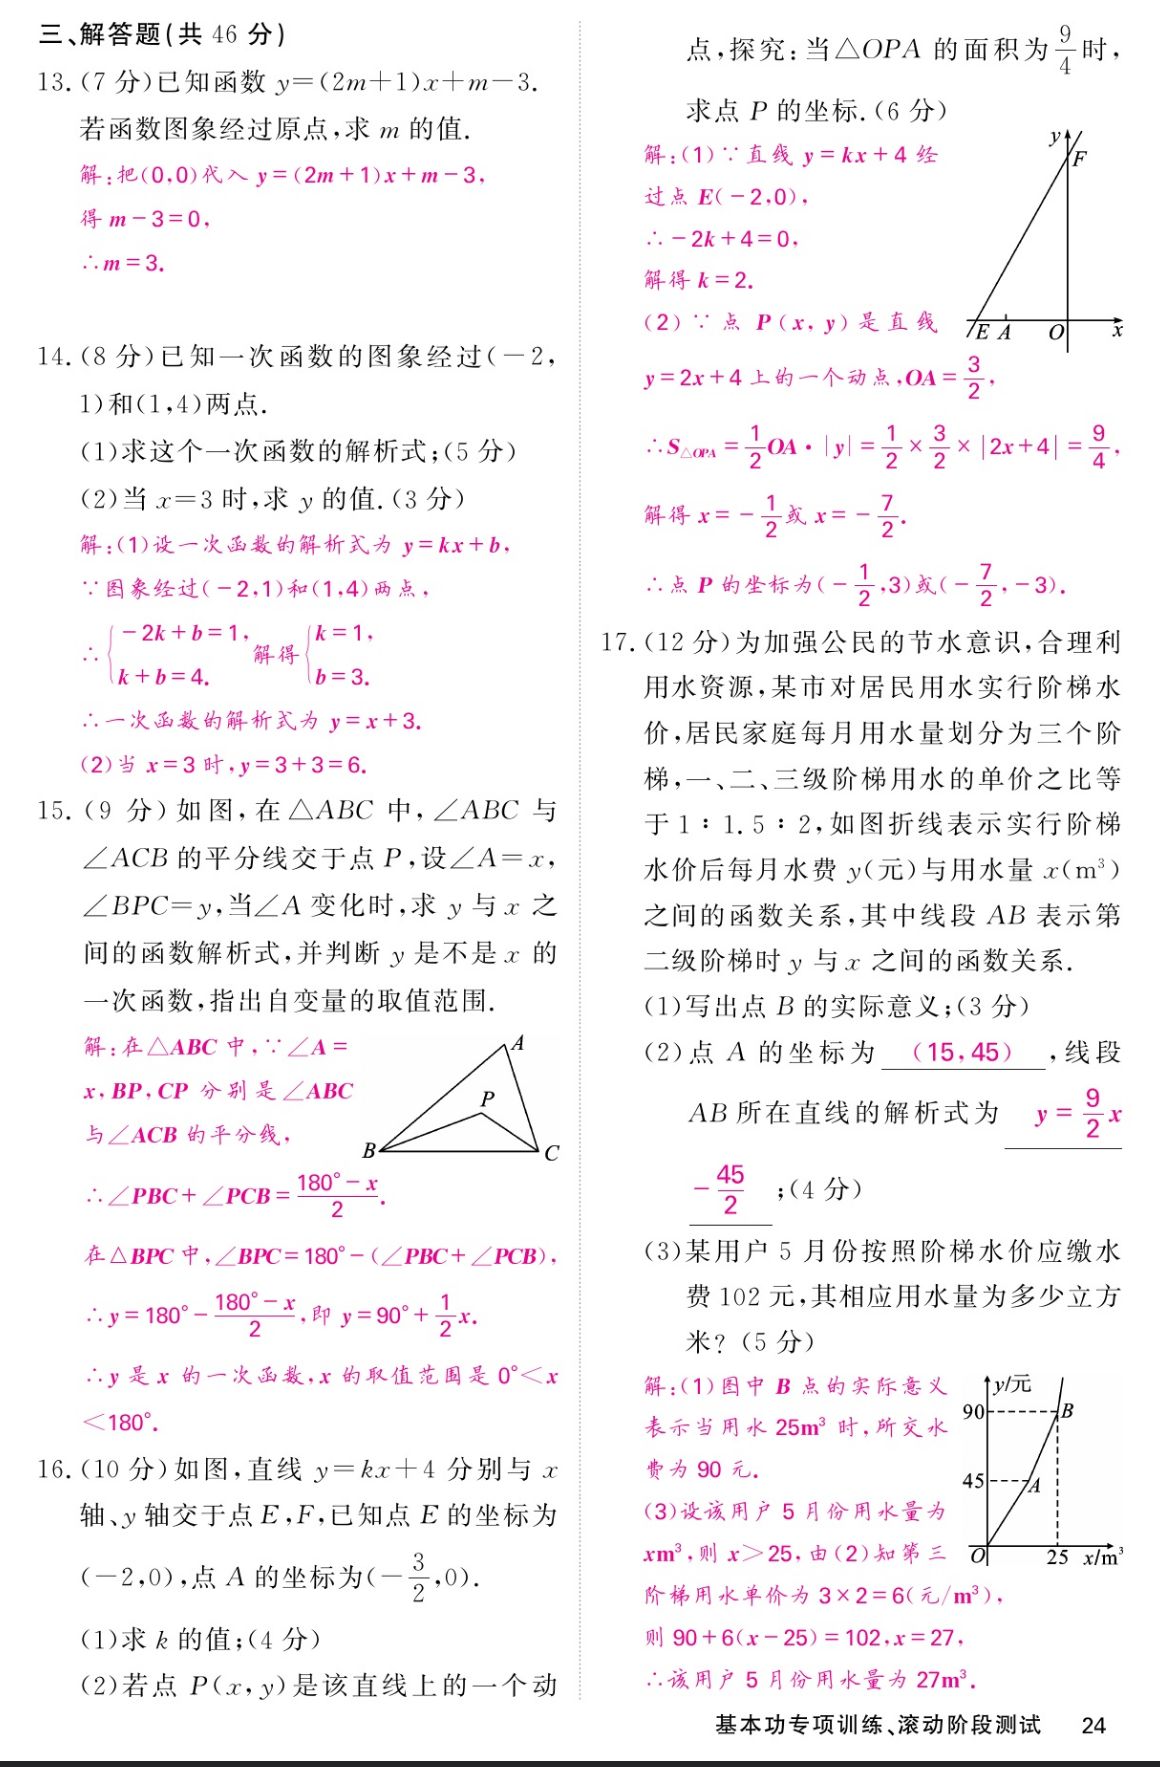 三、解答题(共 46 分)
13.(7 分)已知函数 y=(2m+1)x+m-3.
若函数图象经过原点,求 m 的值.
解:把(0,0)代入 y=(2m+1)x+m-3,
得 m-3=0,
∴m=3.
14.(8 分)已知一次函数的图象经过(-2,
1)和(1,4)两点.
(1)求这个一次函数的解析式;(5 分)
(2)当 x=3 时,求 y 的值.(3 分)
解:(1)设一次函数的解析式为 y=kx+b,
∵图象经过(-2,1)和(1,4)两点,
∴{-2k+b=1, k+b=4. 解得{k=1, b=3.
∴一次函数的解析式为 y=x+3.
(2)当 x=3 时,y=3+3=6.
15.(9 分)如图,在△ABC 中,∠ABC 与
∠ACB 的平分线交于点 P,设∠A=x,
∠BPC=y,当∠A 变化时,求 y 与 x 之
间的函数解析式,并判断 y 是不是 x 的
一次函数,指出自变量的取值范围.
解:在△ABC 中,∵∠A=
x,BP,CP 分别是∠ABC
与∠ACB 的平分线,
∴∠PBC+∠PCB=(180°-x)/2.
在△BPC 中,∠BPC=180°-(∠PBC+∠PCB),
∴y=180°-(180°-x)/2,即 y=90°+1/2x.
∴y 是 x 的一次函数,x 的取值范围是 0°<x
<180°.
A
P
B
C
16.(10 分)如图,直线 y=kx+4 分别与 x
轴、y 轴交于点 E,F,已知点 E 的坐标为
(-2,0),点 A 的坐标为(-3/2,0).
(1)求 k 的值;(4 分)
(2)若点 P(x,y)是该直线上的一个动
点,探究:当△OPA 的面积为9/4时,
求点 P 的坐标.(6 分)
解:(1)∵直线 y=kx+4 经
过点 E(-2,0),
∴-2k+4=0,
解得 k=2.
(2)∵点 P(x,y)是直线
y=2x+4 上的一个动点,OA=3/2,
∴S△OPA=1/2OA·|y|=1/2×3/2×|2x+4|=9/4,
解得 x=-1/2或 x=-7/2.
∴点 P 的坐标为(-1/2,3)或(-7/2,-3).
y
F
E A O x
17.(12 分)为加强公民的节水意识,合理利
用水资源,某市对居民用水实行阶梯水
价,居民家庭每月用水量划分为三个阶
梯,一、二、三级阶梯用水的单价之比等
于 1∶1.5∶2,如图折线表示实行阶梯
水价后每月水费 y(元)与用水量 x(m³)
之间的函数关系,其中线段 AB 表示第
二级阶梯时 y 与 x 之间的函数关系.
(1)写出点 B 的实际意义;(3 分)
(2)点 A 的坐标为 (15,45) ,线段
AB 所在直线的解析式为 y=9/2x
-45/2 ;(4 分)
(3)某用户 5 月份按照阶梯水价应缴水
费 102 元,其相应用水量为多少立方
米?(5 分)
解:(1)图中 B 点的实际意义
表示当用水 25m³ 时,所交水
费为 90 元.
(3)设该用户 5 月份用水量为
xm³,则 x>25,由(2)知第三
阶梯用水单价为 3×2=6(元/m³),
则 90+6(x-25)=102,x=27,
∴该用户 5 月份用水量为 27m³.
y/元
90 B
45 A
O 25 x/m³
基本功专项训练、滚动阶段测试 24